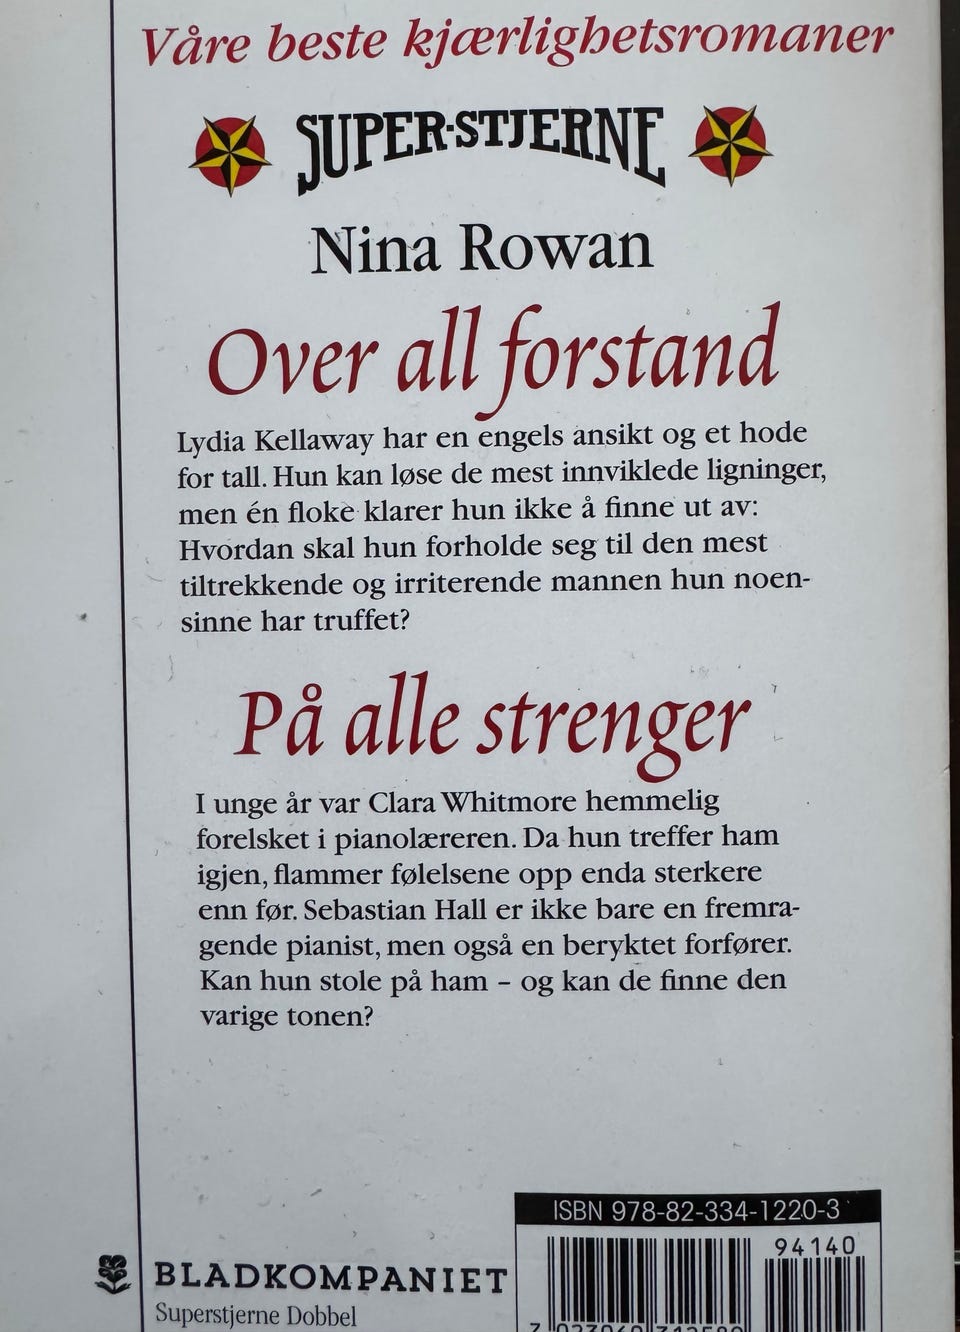 Våre beste kjærlighetsromaner
SUPER-STJERNE
Nina Rowan
Over all forstand
Lydia Kellaway har en engels ansikt og et hode
for tall. Hun kan løse de mest innviklede ligninger,
men én floke klarer hun ikke å finne ut av:
Hvordan skal hun forholde seg til den mest
tiltrekkende og irriterende mannen hun noen-
sinne har truffet?
På alle strenger
I unge år var Clara Whitmore hemmelig
forelsket i pianolæreren. Da hun treffer ham
igjen, flammer følelsene opp enda sterkere
enn før. Sebastian Hall er ikke bare en fremra-
gende pianist, men også en beryktet forfører.
Kan hun stole på ham – og kan de finne den
varige tonen?
ISBN 978-82-334-1220-3
94140
BLADKOMPANIET
Superstjerne Dobbel